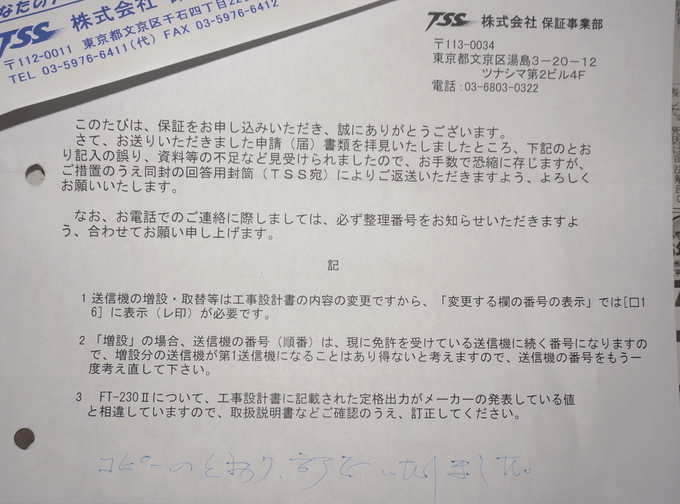 なたの
TSS 株式会社
〒112-0011 東京都文京区千石四丁目22
TEL 03-5976-6411(代) FAX 03-5976-6412
TSS 株式会社 保証事業部
〒113-0034
東京都文京区湯島3-20-12
ツナシマ第2ビル4F
電話:03-6803-0322
このたびは、保証をお申し込みいただき、誠にありがとうございます。
さて、お送りいただきました申請(届)書類を拝見いたしましたところ、下記のとお
り記入の誤り、資料等の不足など見受けられましたので、お手数で恐縮に存じますが、
ご措置のうえ同封の回答用封筒(TSS宛)によりご返送いただきますよう、よろしく
お願いいたします。
なお、お電話でのご連絡に際しましては、必ず整理番号をお知らせいただきますよ
う、合わせてお願い申し上げます。
記
1 送信機の増設・取替等は工事設計書の内容の変更ですから、「変更する欄の番号の表示」では[□1
6]に表示(レ印)が必要です。
2 「増設」の場合、送信機の番号(順番)は、現に免許を受けている送信機に続く番号になりますの
で、増設分の送信機が第1送信機になることはあり得ないと考えますので、送信機の番号をもう一
度考え直して下さい。
3 FT-230Ⅱについて、工事設計書に記載された定格出力がメーカーの発表している値
と相違していますので、取扱説明書などご確認のうえ、訂正してください。
コピーのとおり、訂正いたしました。